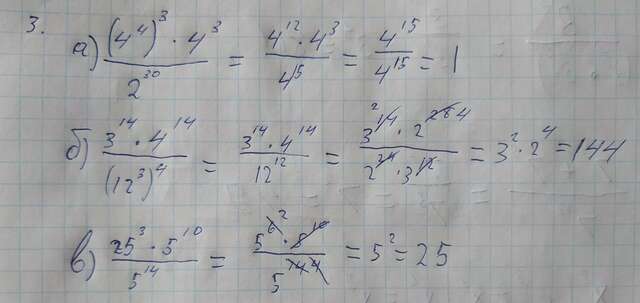 3.
а) (4⁴)³ · 4³ / 2³⁰ = 4¹² · 4³ / 4¹⁵ = 4¹⁵ / 4¹⁵ = 1
б) 3¹⁴ · 4¹⁴ / (12³)⁴ = 3¹⁴ · 4¹⁴ / 12¹² = 3¹⁴ ² · 2²⁸ ⁴ / 2²⁴ · 3¹² = 3² · 2⁴ = 144
в) 25³ · 5¹⁰ / 5¹⁴ = 5⁶ ² · 5¹⁰ / 5¹⁴ ⁴ = 5² = 25